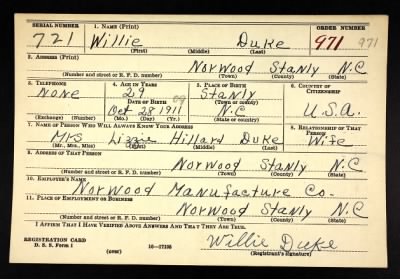 SERIAL NUMBER 1. NAME (Print) ORDER NUMBER
721 Willie Duke 971 971
(First) (Middle) (Last)
2. ADDRESS (Print)
Norwood Stanly N.C
(Number and street or R. F. D. number) (Town) (County) (State)
3. TELEPHONE 4. AGE IN YEARS 5. PLACE OF BIRTH 6. COUNTRY OF CITIZENSHIP
None 29 Stanly
DATE OF BIRTH (Town or county)
Oct 28 1911 N.C U.S.A.
(Exchange) (Number) (Mo.) (Day) (Yr.) (State or country)
7. NAME OF PERSON WHO WILL ALWAYS KNOW YOUR ADDRESS 8. RELATIONSHIP OF THAT PERSON
Mrs Hillard Duke Wife
(Mr., Mrs., Miss) (First) (Middle) (Last)
9. ADDRESS OF THAT PERSON
Norwood Stanly N.C
(Number and street or R. F. D. number) (Town) (County) (State)
10. EMPLOYER'S NAME
Norwood Manufacture Co.
11. PLACE OF EMPLOYMENT OR BUSINESS
Norwood Stanly N.C
(Number and street or R. F. D. number) (Town) (County) (State)
I AFFIRM THAT I HAVE VERIFIED ABOVE ANSWERS AND THAT THEY ARE TRUE.
REGISTRATION CARD
D. S. S. Form 1 16-17105 Willie Duke
(over) (Registrant's signature)